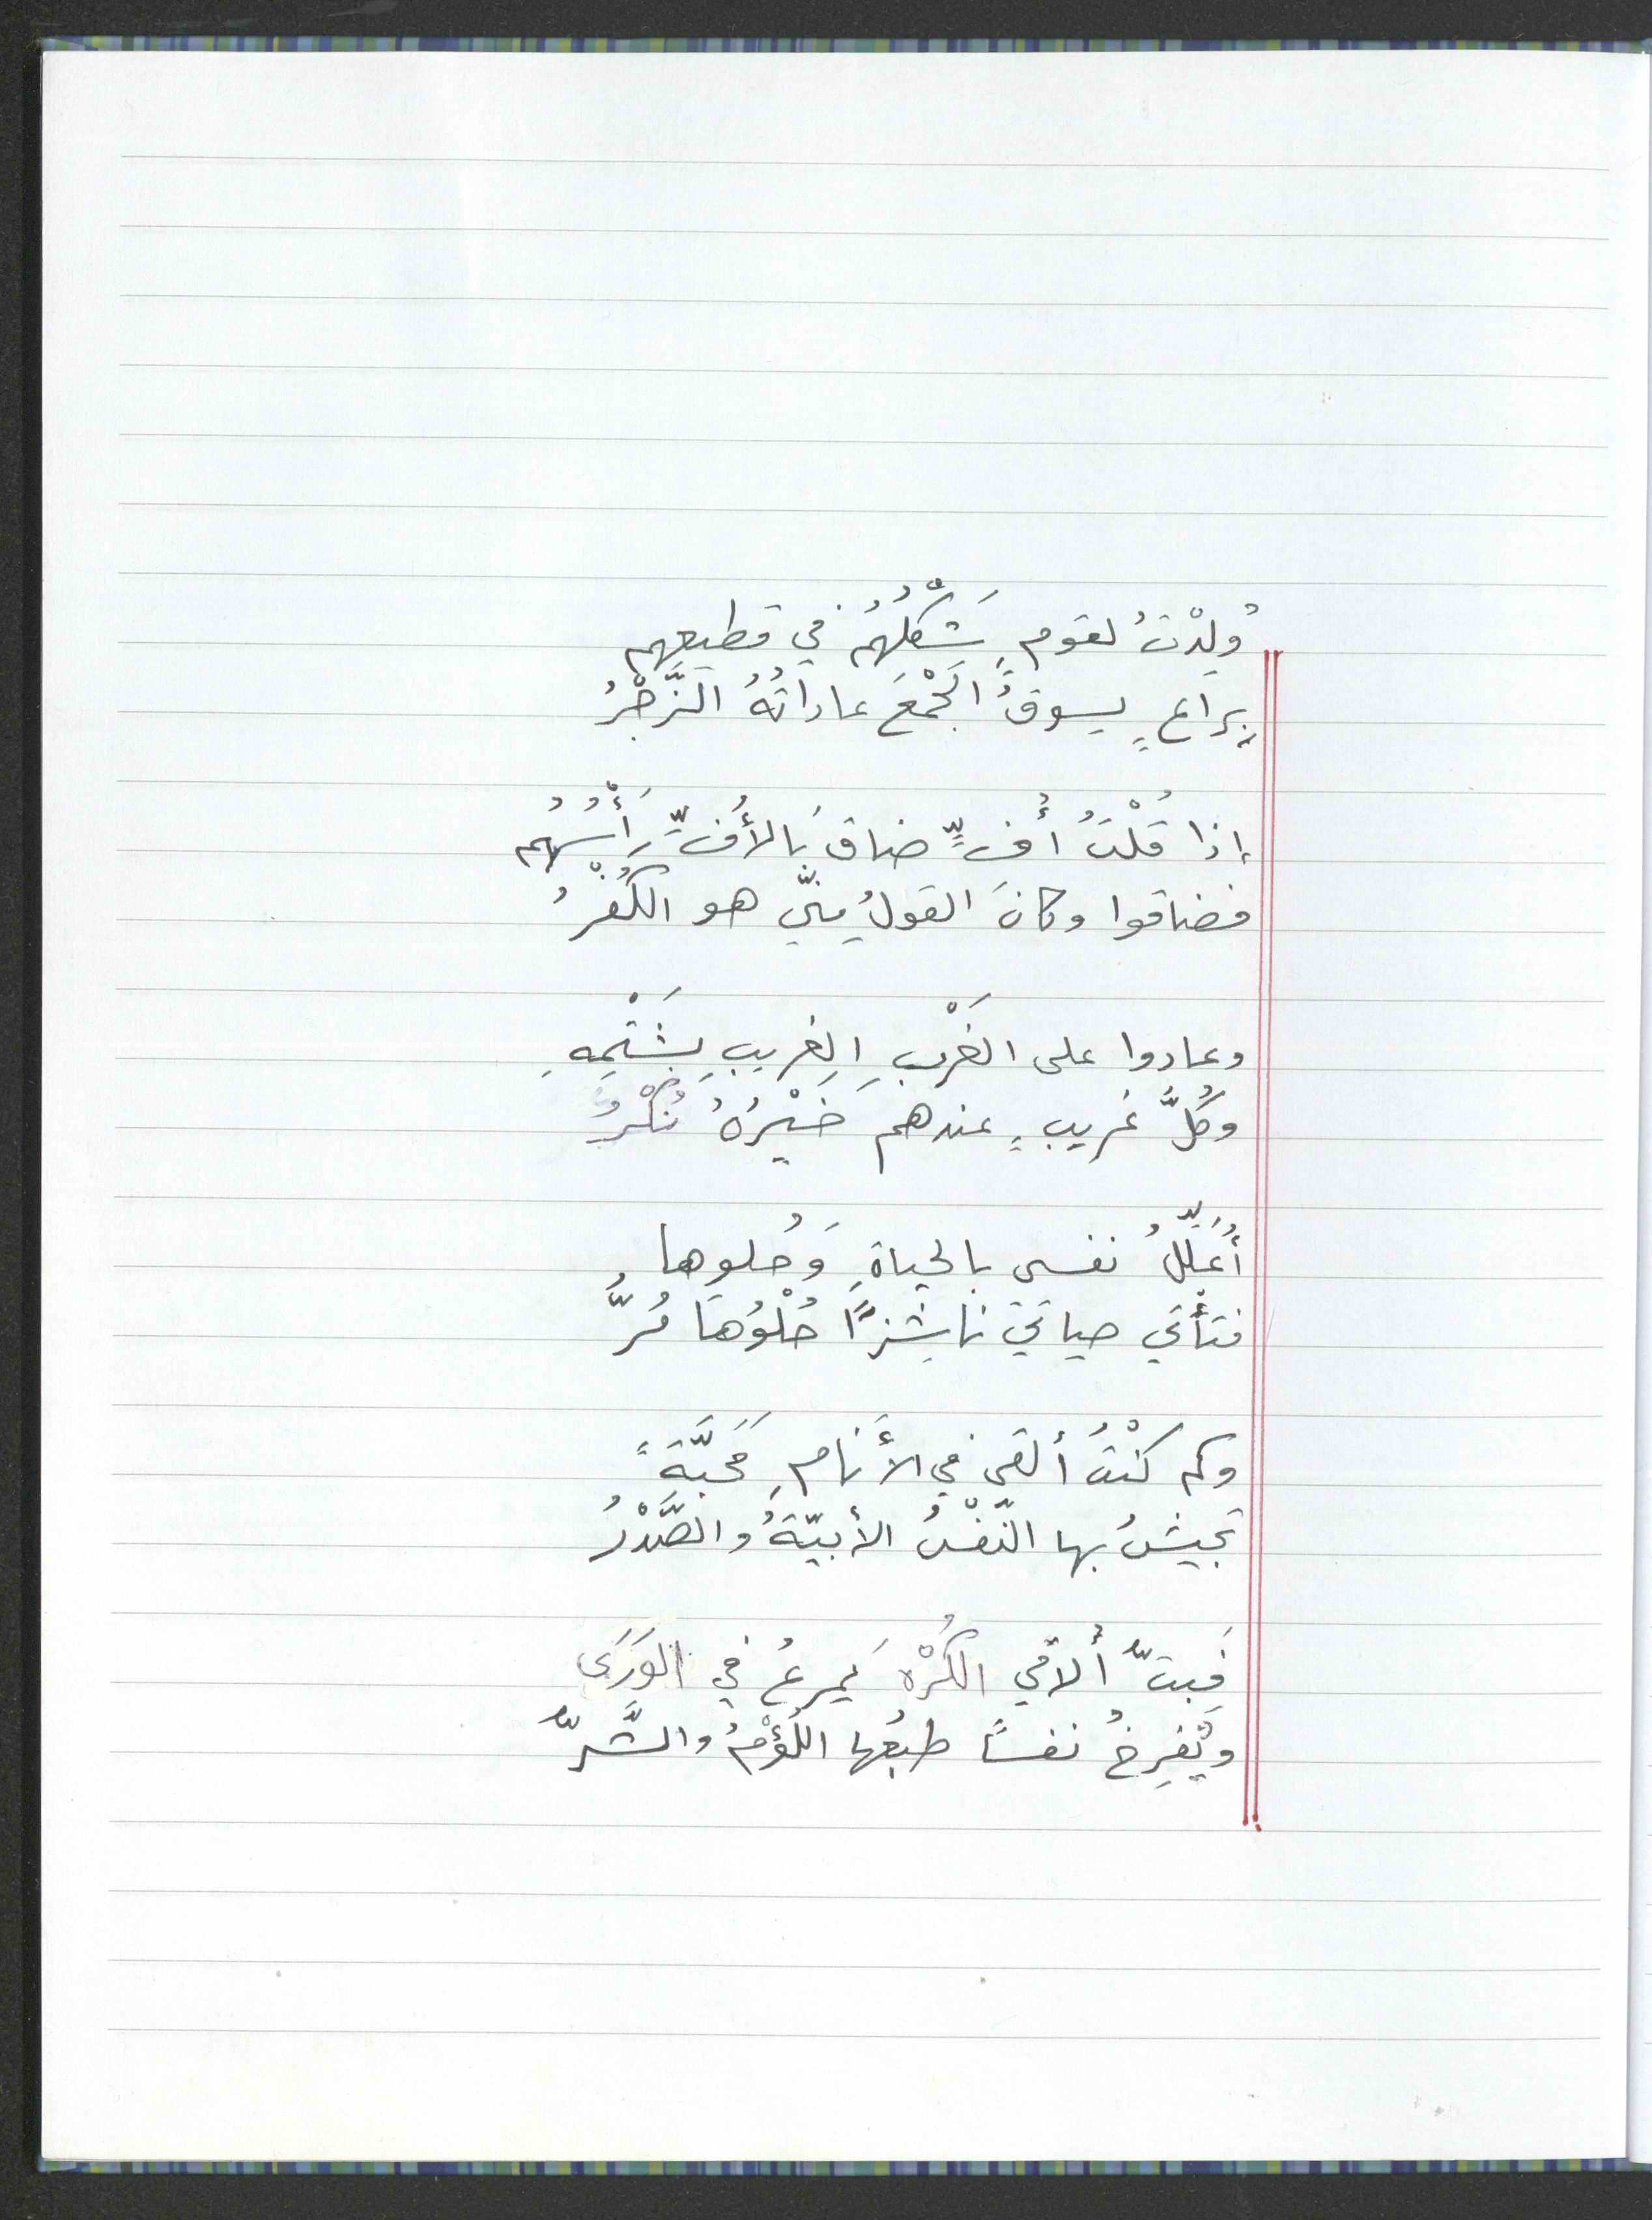 وُلِدْتُ لقومٍ شَكْلُهُمْ في قطيعِهم
بِراعٍ يسوقُ الجَمْعَ عاداتُهُ الزَّجْرُ
إذا قُلْتُ أُفٍّ ضاقَ بالأُفِّ رَأْسُهُم
فضاقوا وكانَ القولُ مِنّي هو الكُفْرُ
وعادوا على الغَرْبِ الغريبِ بِشَتْمِهِ
وكُلُّ غريبٍ عندهم خَيْرُهُ نُكْرُ
أُعَلِّلُ نفسي بالحياةِ وَحُلوِها
فتأْتي حياتي ناشِزًا حُلْوُها مُرُّ
وكم كنْتُ ألقى في الأَنامِ مَحَبَّةً
تجيشُ بها النّفْسُ الأبيّةُ والصَّدْرُ
فَبِتُّ أُلاقي الكُرْهَ يَمرعُ في الوَرَى
ويُفرِخُ نفسًا طبعُها اللُؤْمُ والشَّرُّ